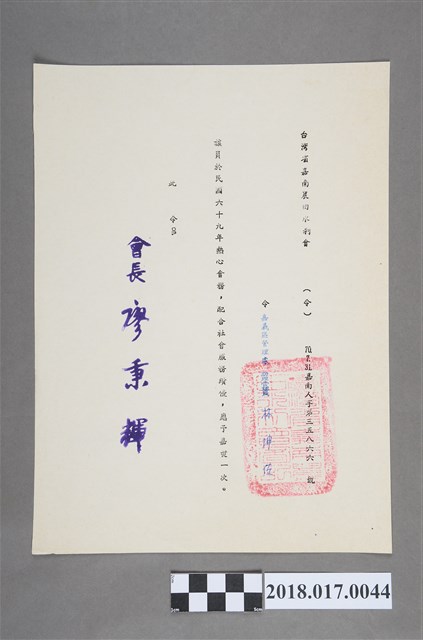 台灣省嘉南農田水利會 （令） 嘉南人字第三五八六六號
令 嘉義區管理處 林
該員於民國六十九年熱心會務，配合社會服務績優，應予嘉奬一次。
此 令
會長 廖秉輝
2018.017.0044